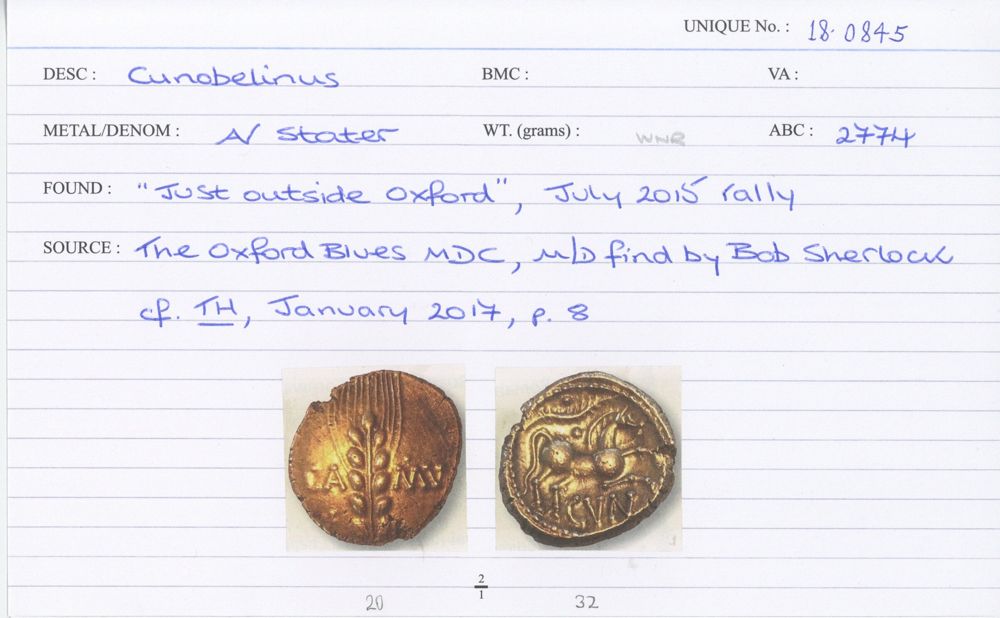 UNIQUE No. : 18.0845
DESC : Cunobelinus BMC : VA :
METAL/DENOM : A/ Stater WT. (grams) : WNR ABC : 2774
FOUND : "Just outside Oxford", July 2015 rally
SOURCE : The Oxford Blues MDC, M/D find by Bob Sherlock
cf. TH, January 2017, p. 8
CA MV
CVN
2
1
20 32